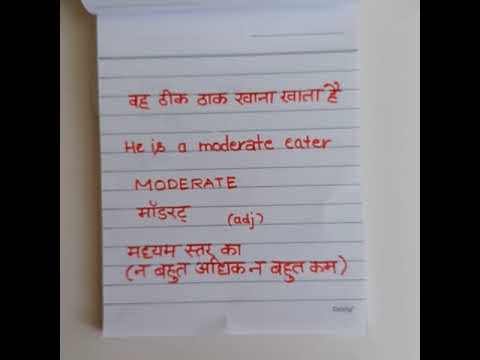 वह ठीक ठाक खाना खाता है
He is a moderate eater
MODERATE
मॉडरट्
(adj)
मध्यम स्तर का
(न बहुत अधिक न बहुत कम)